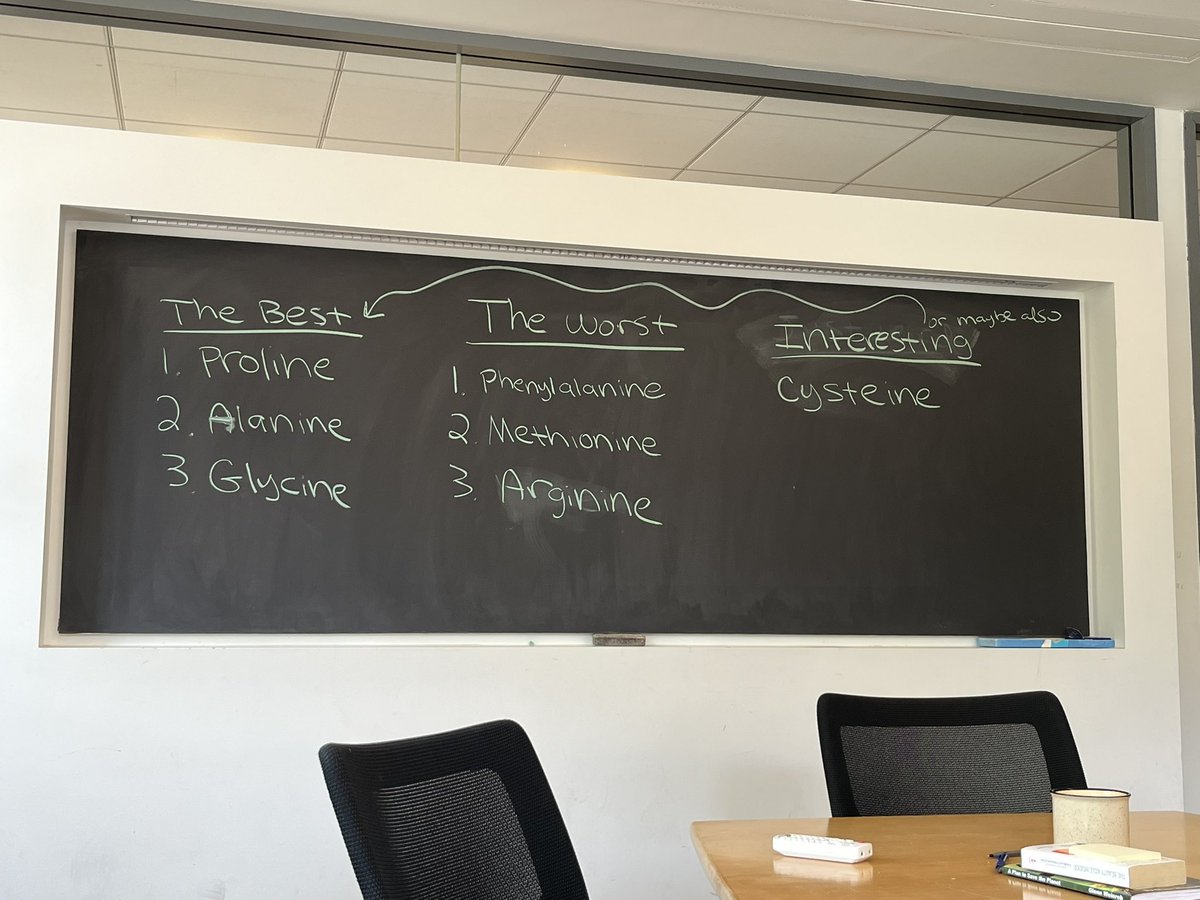 The Best
1. Proline
2. Alanine
3. Glycine
The Worst
1. Phenylalanine
2. Methionine
3. Arginine
Interesting
or maybe also
Cysteine
A Plan to Save the Planet